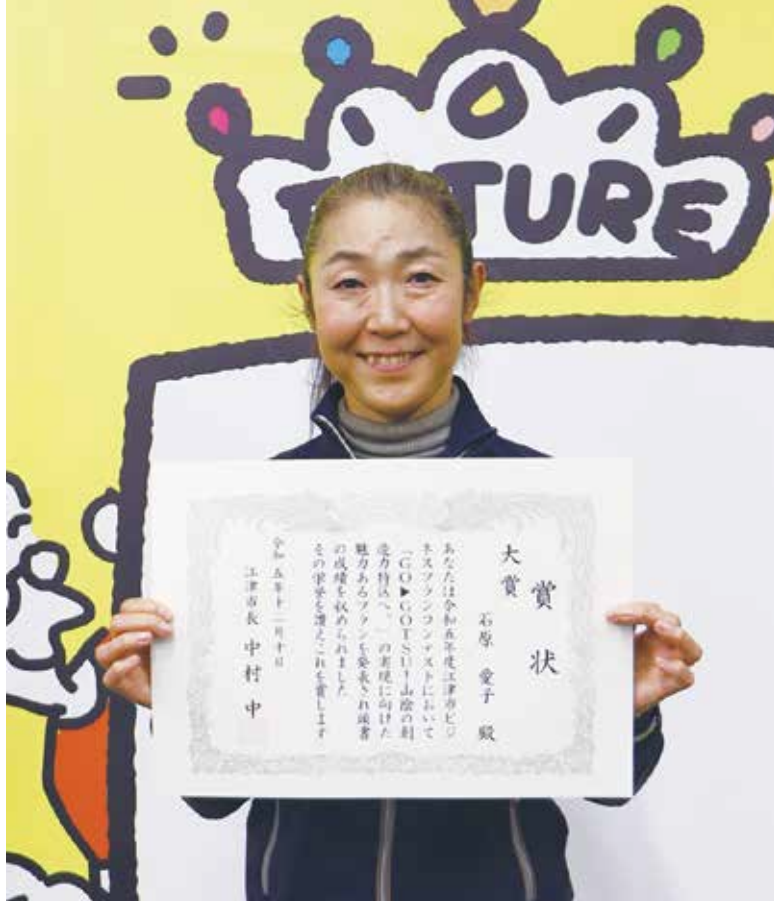 TURE
賞状
大賞
石原 愛子 殿
あなたは令和五年度江津市ビジ
ネスプランコンテストにおいて
「GO▶GOTSU!山陰の創
造力特区へ。」の実現に向けた
魅力あるプランを発表され頭書
の成績を収められました
その栄誉を讃えこれを賞します
令和五年十二月十日
江津市長 中村 中